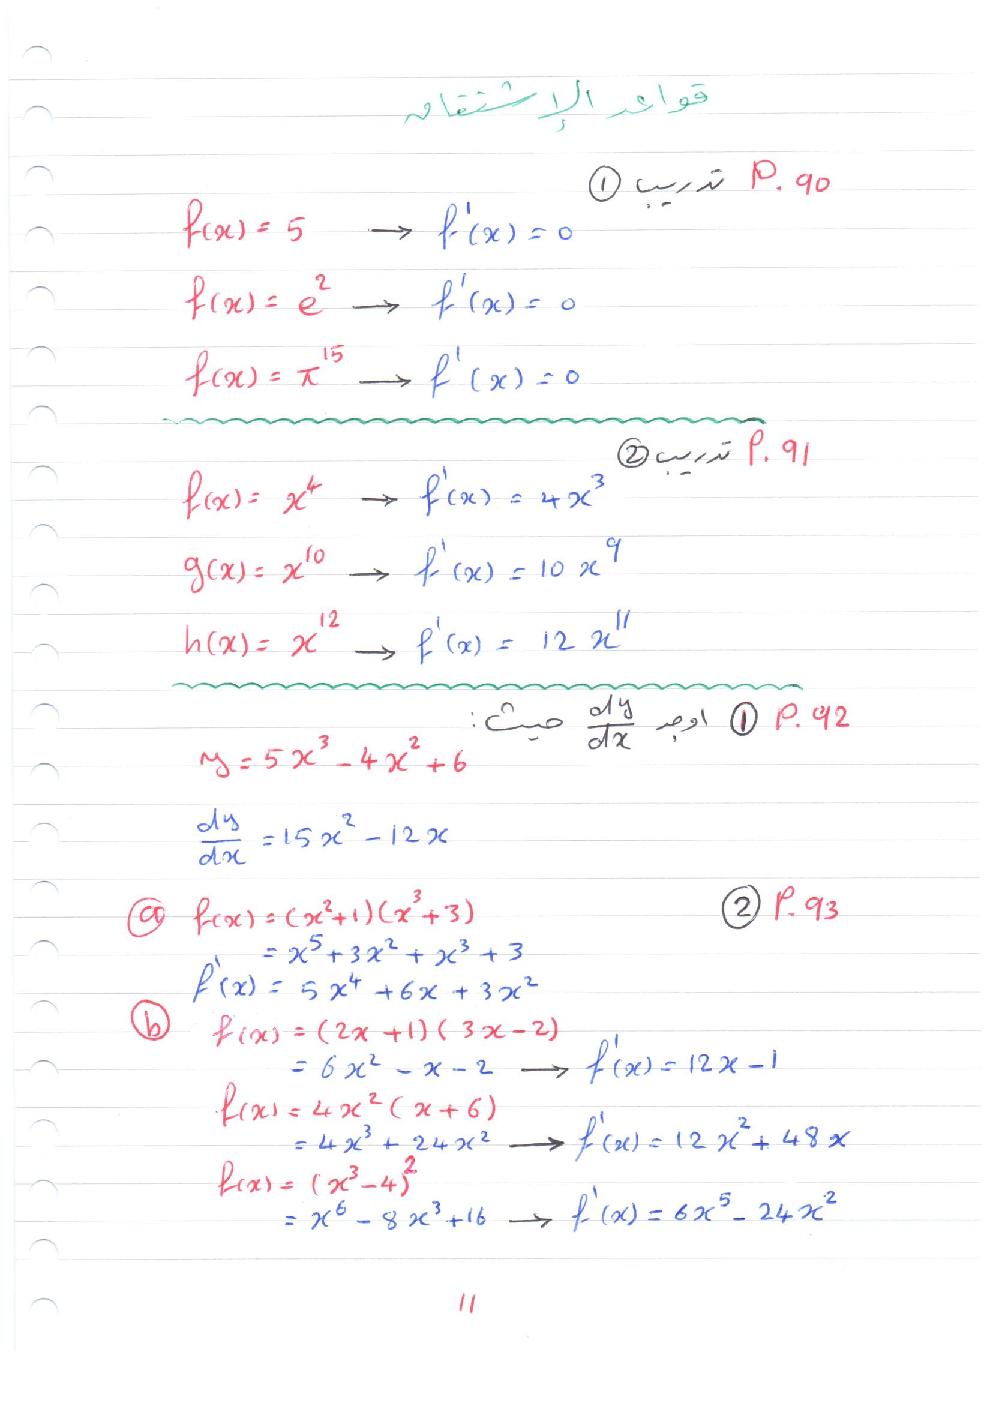 قواعد الإشتقاق
P. 90 تدريب ①
f(x) = 5 → f'(x) = 0
f(x) = e² → f'(x) = 0
f(x) = π¹⁵ → f'(x) = 0
P. 91 تدريب ②
f(x) = x⁴ → f'(x) = 4x³
g(x) = x¹⁰ → f'(x) = 10 x⁹
h(x) = x¹² → f'(x) = 12 x¹¹
P. 92 ① اوجد dy/dx حيث :
y = 5x³ - 4x² + 6
dy/dx = 15x² - 12x
② P. 93
ⓐ f(x) = (x²+1)(x³+3)
= x⁵ + 3x² + x³ + 3
f'(x) = 5x⁴ + 6x + 3x²
ⓑ f(x) = (2x +1)(3x - 2)
= 6x² - x - 2 → f'(x) = 12x - 1
f(x) = 4x² (x + 6)
= 4x³ + 24x² → f'(x) = 12x² + 48x
f(x) = (x³ - 4)²
= x⁶ - 8x³ + 16 → f'(x) = 6x⁵ - 24x²
11